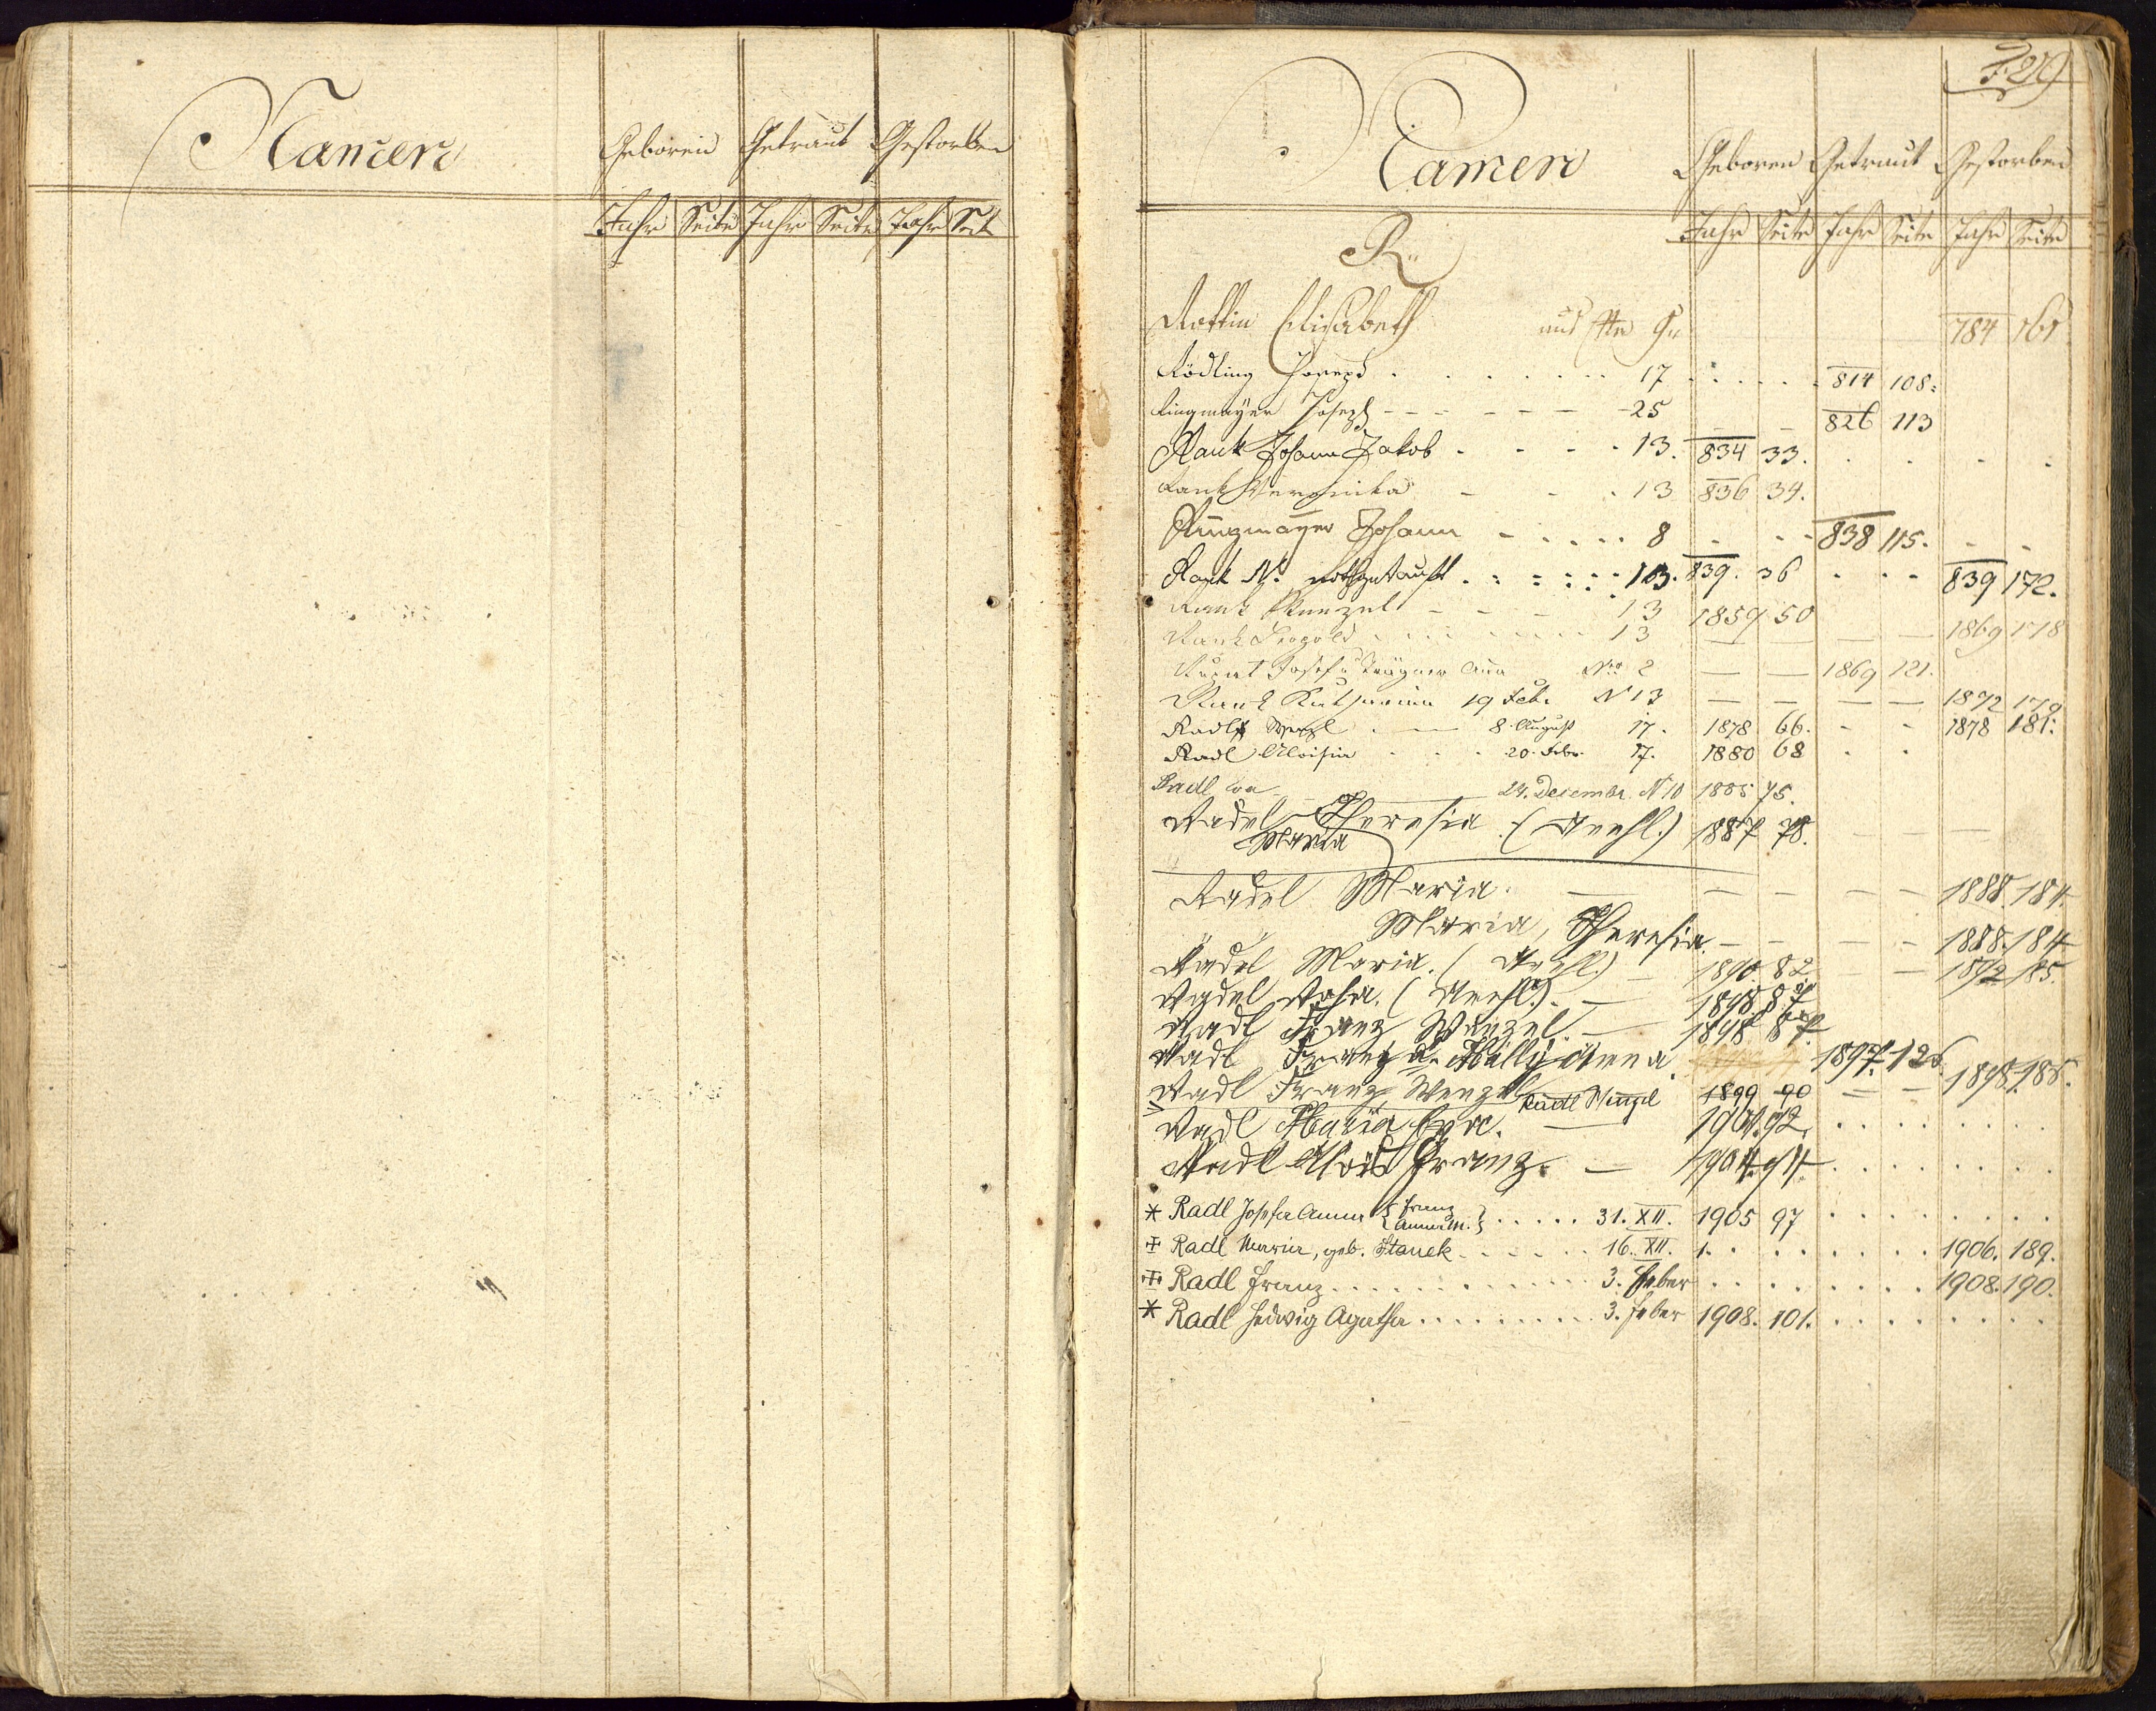 Namen
Geboren Getraut Gestorben
Jahr Seite Jahr Seite Jahr Seit
Namen
Geboren Getraut Gestorben
Jahr Seite Jahr Seite Jahr Seite
R
Elisabeth 784 161
Rödling Joseph 17 814 108
Ringmayer Joseph 25 826 113
Rank Johann Jakob 13. 834 33.
Rank Veronika 13 836 34.
Ringmayer Johann 8 838 115.
Rank N. nothgetauft 13. 839. 36 839 172.
Rank Wenzel 13 1859 50
Rank Leopold 13 1869 178
Josef u Anna Nro 2 1869 121.
Rank Katharina 19 Feb. N 13 1872 179
Radl Wenzl 8. August 17. 1878 66. 1878 181.
Radl Aloisia 20. Febr. 17. 1880 68
Radl Eva 24. Dezember. N 10 1885 75.
Radel Theresia (unehl.) 1887 78.
Maria
Radel Maria. 1888. 184.
Maria, Theresia. 1888. 184
Radel Maria. (unehl.) 1890. 82 1892 185.
Radel Rosa. (unehl.). 1898 87
Radl Franz Wenzel. 1898 87.
Radl Franz u. Anna. 1897. 126
Radl Franz Wenzel 1898. 188.
Radl Wenzel 1899 90
Radl Maria Eva. 1901. 92.
Radl Alois Franz. 1904. 94.
* Radl Josefa Anna { Franz Anna M. } 31. XII. 1905 97
+ Radl Maria, geb. Stanek 16. XII. 1. 1906. 189.
+ Radl Franz 3. Feber 1908. 190.
* Radl Hedwig Agatha 3. Feber 1908. 101.